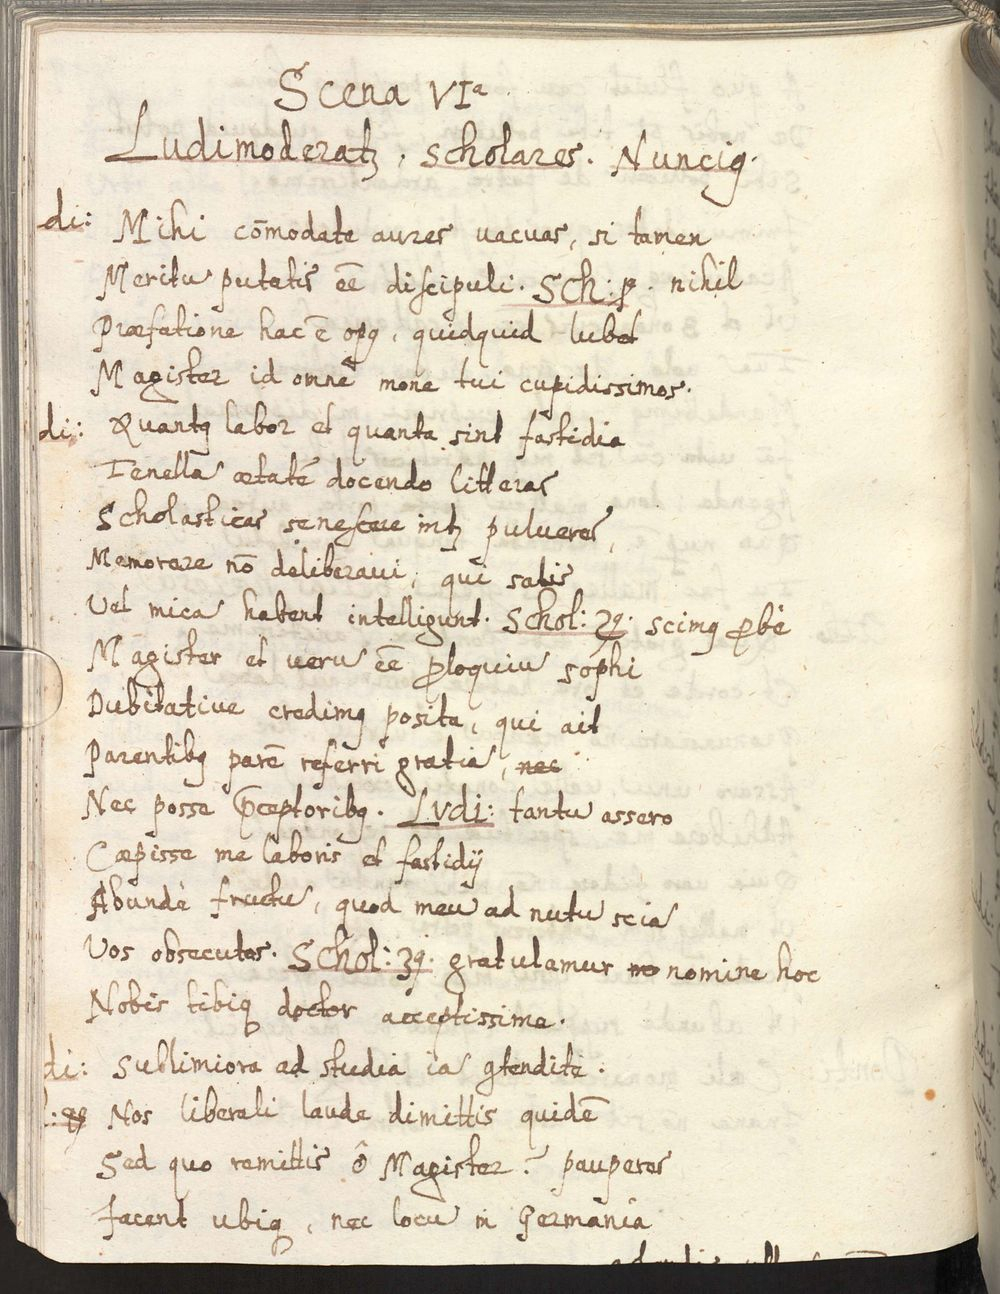 Scena VIª
Ludimoderatꝫ. Scholares. Nunciꝯ.
di: Mihi cōmodate aures uacuas, si tamen
Meritū putatis eē discipuli. Sch: p. nihil
Præfatione hac ē opꝯ, quidquid lubet
Magister id omnē mone tui cupidissimos.
di: Quantꝯ labor et quanta sint fastidia
Tenellā ætatē docendo litteras
Scholasticas senescere intꝫ pulueres,
Memorare nō deliberaui, qui salis
Vel micā habent intelligunt. Schol: 2ꝯ. scimꝯ ꝓbè
Magister et uerū eē ꝓloquiū sophi
Dubitatiue credimꝯ posita, qui ait
Parentibꝯ parē referri gratiā, nec
Nec posse p̄ceptoribꝯ. Lvdi: tantū assero
Cæpisse me laboris et fastidij
Abundè fructū, quod meū ad nutū sciā
Vos obsecutos. Schol: 3ꝯ. gratulamur mo nomine hoc
Nobis tibiqꝫ doctor acceptissime.
di: Sublimiora ad studia iā ꝯtendite.
Nos liberali laude dimittis quidē
Sed quo remittis ô Magister? pauperes
Iacent ubiqꝫ, nec locū in Germania